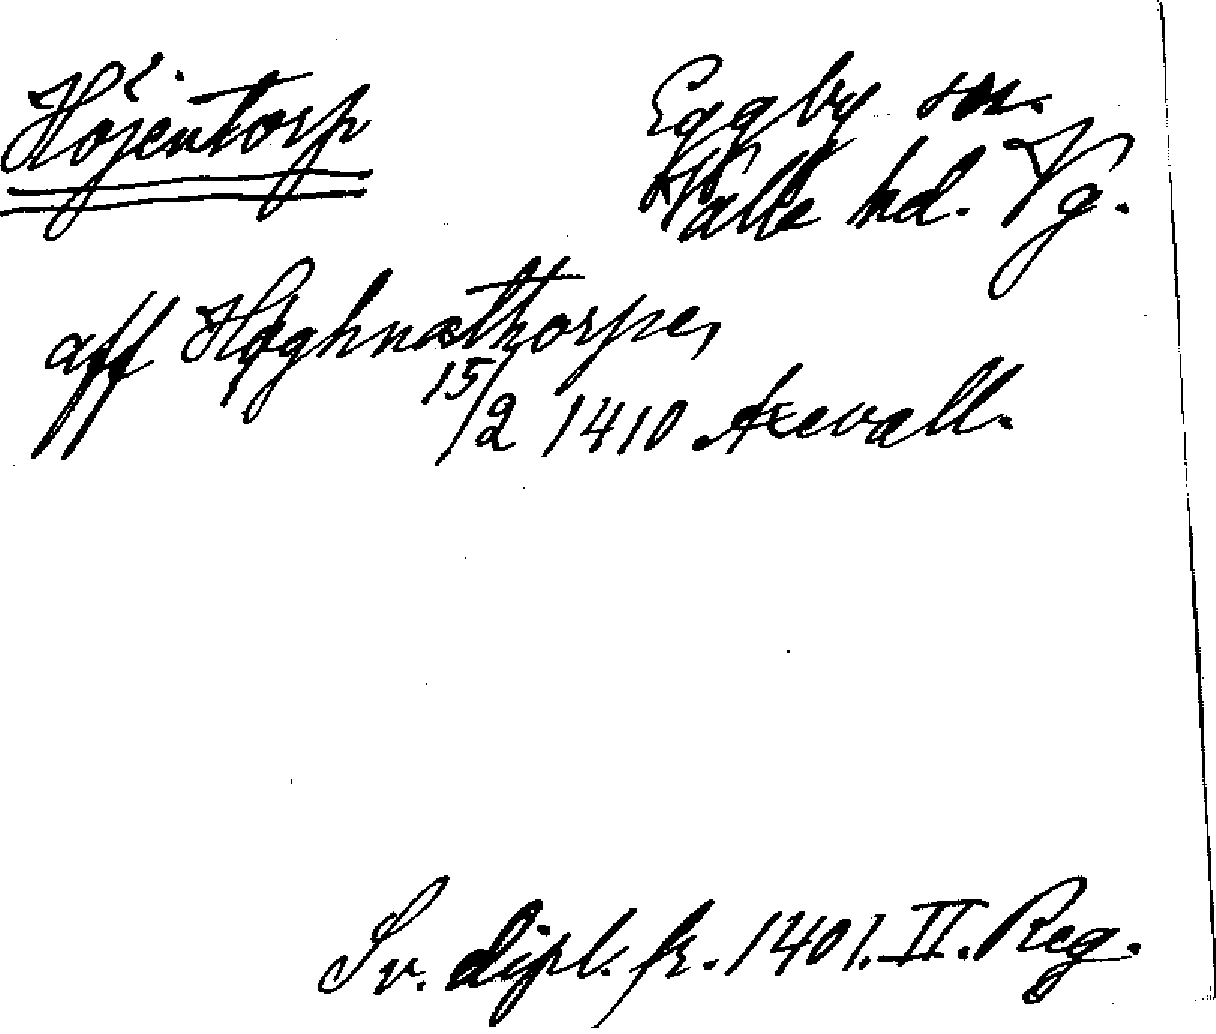 Höjentorp
Eggby sn.
Valle hd. Vg.
aff Høghnathorpe,
15/2 1410 Axevall.
Sv. dipl. fr. 1401. II. Reg.